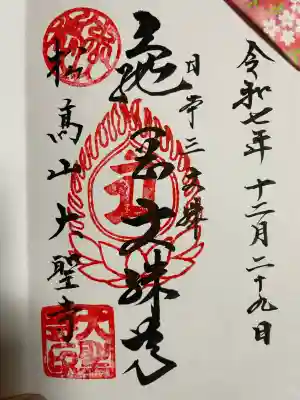 令和七年十二月二十九日
日本三文殊
龜岡文殊尊
松高山大聖寺
大聖寺印